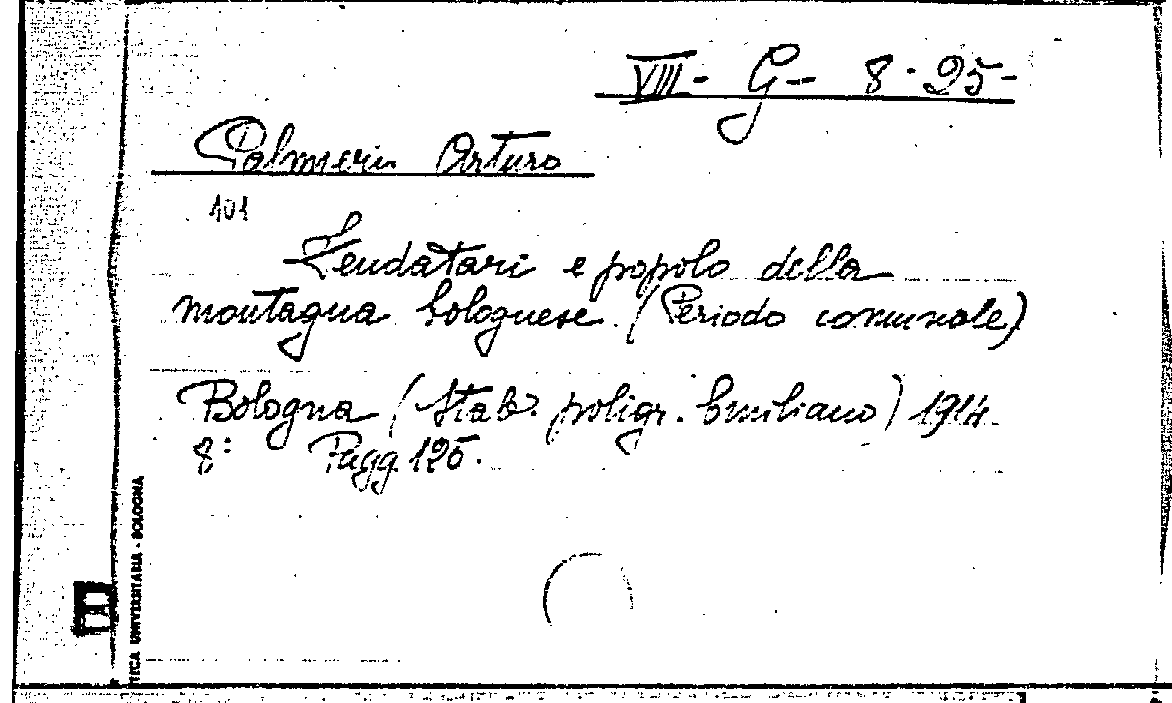 VIII - G - 8 - 25 -
Palmieri Arturo
101
Feudatari e popolo della
montagna bolognese (Periodo comunale)
Bologna (Stab. poligr. Emiliano) 1914
8° Pagg. 125.
TICA UNIVERSITARIA - BOLOGNA